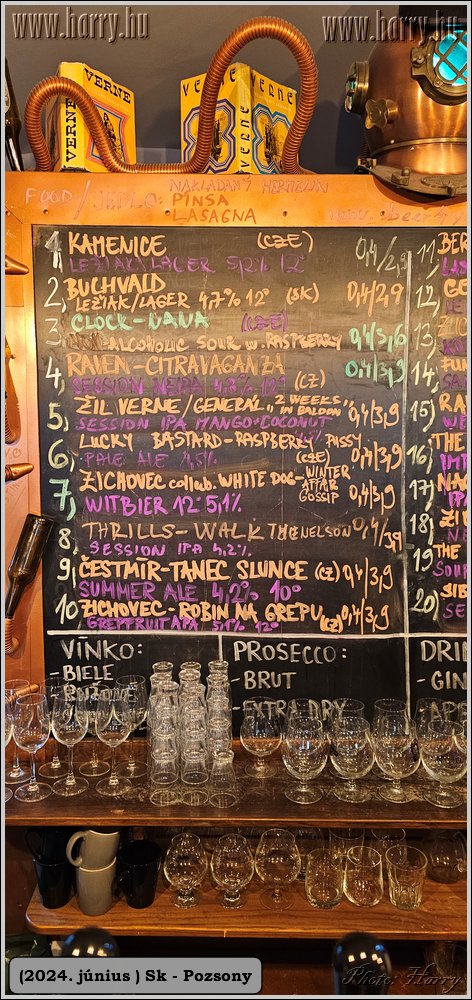 www.harry.hu
www.harry.hu
VERNE
VERNE
VERNE
VERNE
VERNE
FOOD / JEDLO: NAKLADANÝ HERMELÍN
PINSA
LASAGNA
1, KAMENICE (CZE) 0,4/2,9
LEŽIAK/LAGER 5,2% 12°
2, BUCHVALD
LEŽIAK/LAGER 4,7% 12° (SK) 0,4/2,9
3, CLOCK-NANA (CZE)
NON-ALCOHOLIC SOUR W. RASPBERRY 0,4/3,6
4, RAVEN-CITRAVAGANZA 0,4/3,9
SESSION NEIPA 4,3% 12° (CZ)
5, ŽIL VERNE/GENERÁL „2 WEEKS IN BALOON" 0,4/3,9
SESSION IPA MANGO+COCONUT
6, LUCKY BASTARD-RASPBERRY PAISSY
PALE ALE 4,5% (CZE) 0,4/3,9
7, ZICHOVEC collab. WHITE DOG- WINTER AFFAIR GOSSIP 0,4/3,9
WITBIER 12° 5,1%
8, THRILLS-WALK THENELSON 0,4/3,9
SESSION IPA 4,2%
9, ČESTMÍR-TANEC SLUNCE (CZ) 0,4/3,9
SUMMER ALE 4,2% 10°
10, ZICHOVEC-ROBIN NA GREPU (CZ) 0,4/3,9
GREPFRUIT APA 5,1% 12°
11,
12,
13,
14,
15)
16)
17)
18)
19)
20)
VÍNKO:
- BIELE
- RUŽOVÉ
PROSECCO:
- BRUT
- EXTRA DRY
DRI
- GIN
(2024. június ) Sk - Pozsony
Photo: Harry